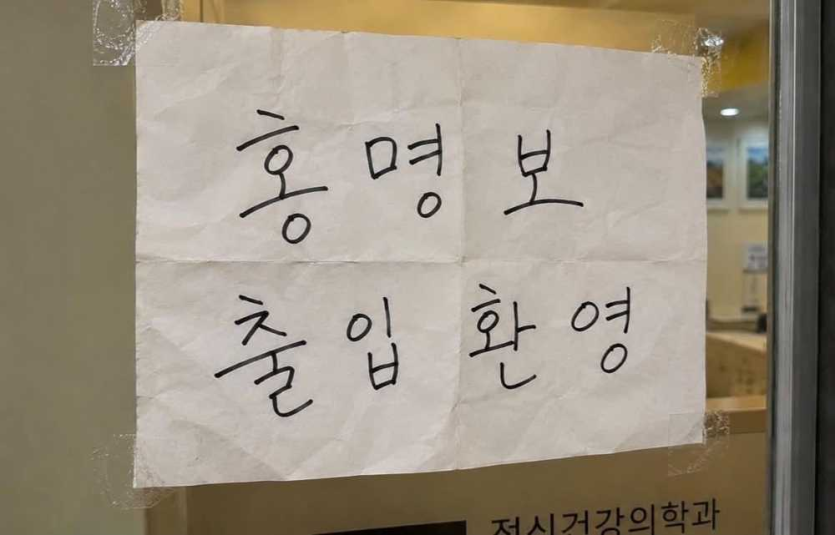 홍명보
출입환영
정신건강의학과